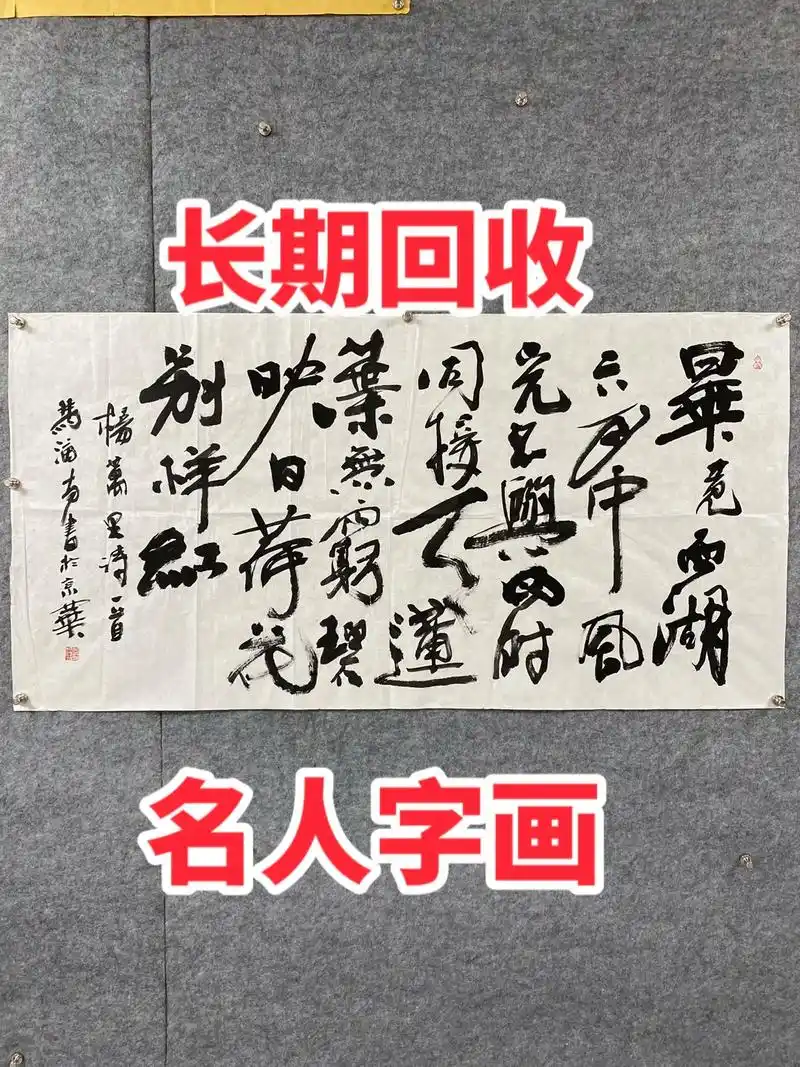 长期回收
畢竟西湖
六月中風
光不與四时
同接天蓮
葉無窮碧
映日荷花
别样紅
楊萬里詩一首
書於京華
名人字画